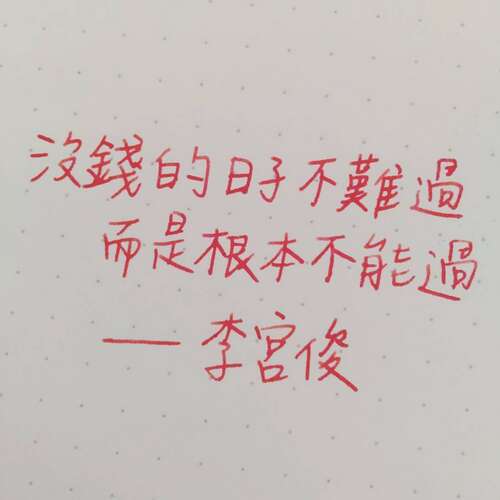 沒錢的日子不難過
而是根本不能過
──李宮俊